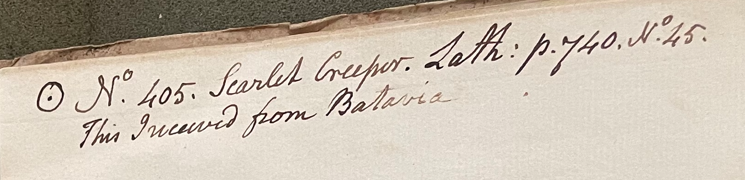 ☉ Nº. 405. Scarlet Creeper. Lath: p. 740. Nº 45.
This I received from Batavia